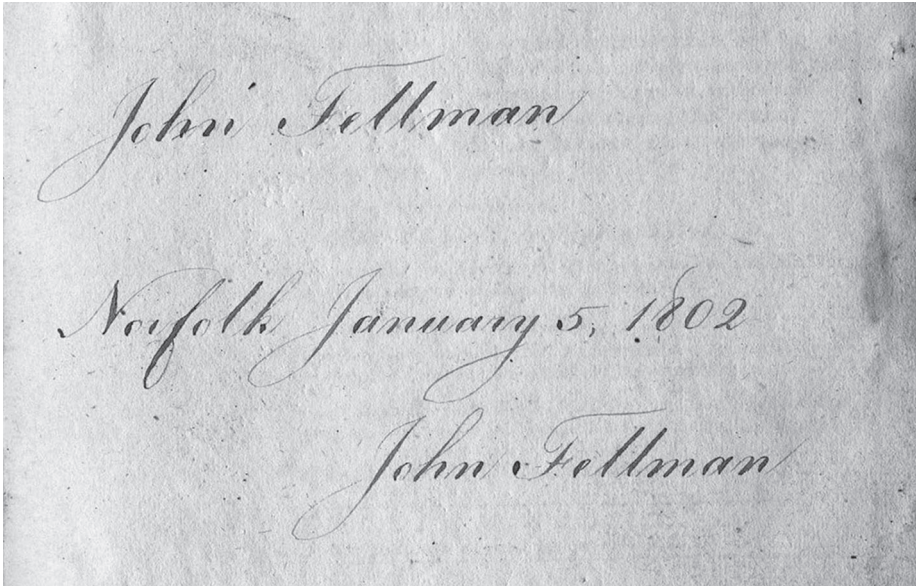 John Fellman
Norfolk January 5, 1802
John Fellman